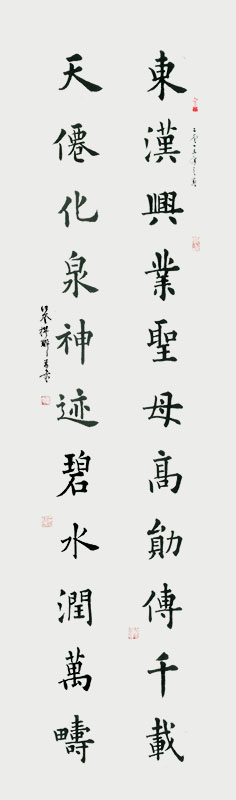 東漢興業聖母高勛傳千載
天僊化泉神迹碧水潤萬疇